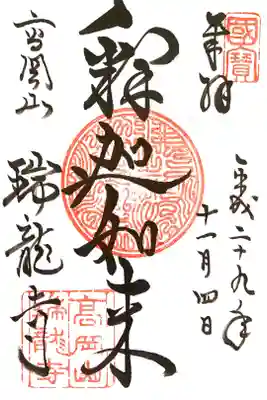 國寶
奉拝
平成二十九年
十一月四日
釋迦如来
高岡山
瑞龍寺
高岡山
瑞龍寺